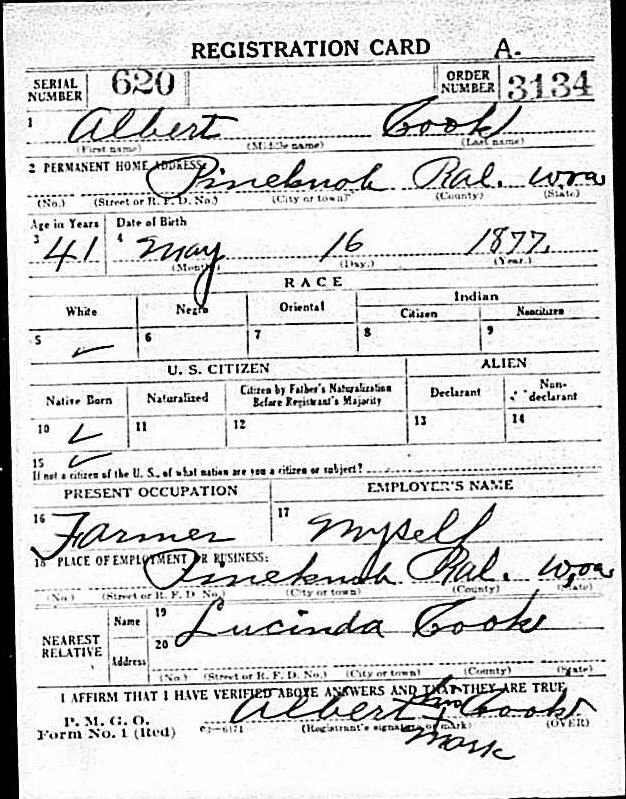 REGISTRATION CARD A.
SERIAL NUMBER 620 ORDER NUMBER 3134
1 Albert Cook
(First name) (Middle name) (Last name)
2 PERMANENT HOME ADDRESS:
Pineknob Ral. W,va
(No.) (Street or R. F. D. No.) (City or town) (County) (State)
Age in Years Date of Birth
3 41 4 May 16 1877.
(Month) (Day.) (Year.)
RACE
White Negro Oriental Indian
Citizen Noncitizen
5 ✓ 6 7 8 9
U. S. CITIZEN ALIEN
Native Born Naturalized Citizen by Father's Naturalization Before Registrant's Majority Declarant Non-declarant
10 ✓ 11 12 13 14
15 ✓
If not a citizen of the U. S., of what nation are you a citizen or subject?
PRESENT OCCUPATION EMPLOYER'S NAME
16 Farmer 17 Myself
18 PLACE OF EMPLOYMENT OR BUSINESS:
Pineknob Ral. W,va
(No.) (Street or R. F. D. No.) (City or town) (County) (State)
NEAREST RELATIVE Name 19 Lucinda Cook
Address 20
(No.) (Street or R. F. D. No.) (City or town) (County) (State)
I AFFIRM THAT I HAVE VERIFIED ABOVE ANSWERS AND THAT THEY ARE TRUE
P. M. G. O.
Form No. 1 (Red) 03-6171 Albert his x Cook
(Registrant's signature or mark) (OVER)
Mark